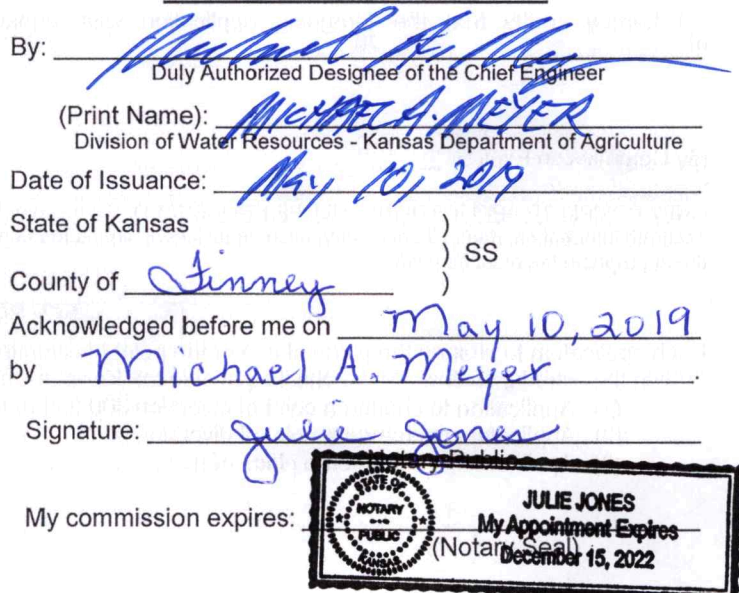 By: Michael A. Meyer
Duly Authorized Designee of the Chief Engineer
(Print Name): MICHAEL A. MEYER
Division of Water Resources - Kansas Department of Agriculture
Date of Issuance: May 10, 2019
State of Kansas )
) SS
County of Finney )
Acknowledged before me on May 10, 2019
by Michael A. Meyer.
Signature: Julie Jones
Notary Public
My commission expires:
STATE OF KANSAS
NOTARY PUBLIC
JULIE JONES
My Appointment Expires
December 15, 2022
(Notary Seal)